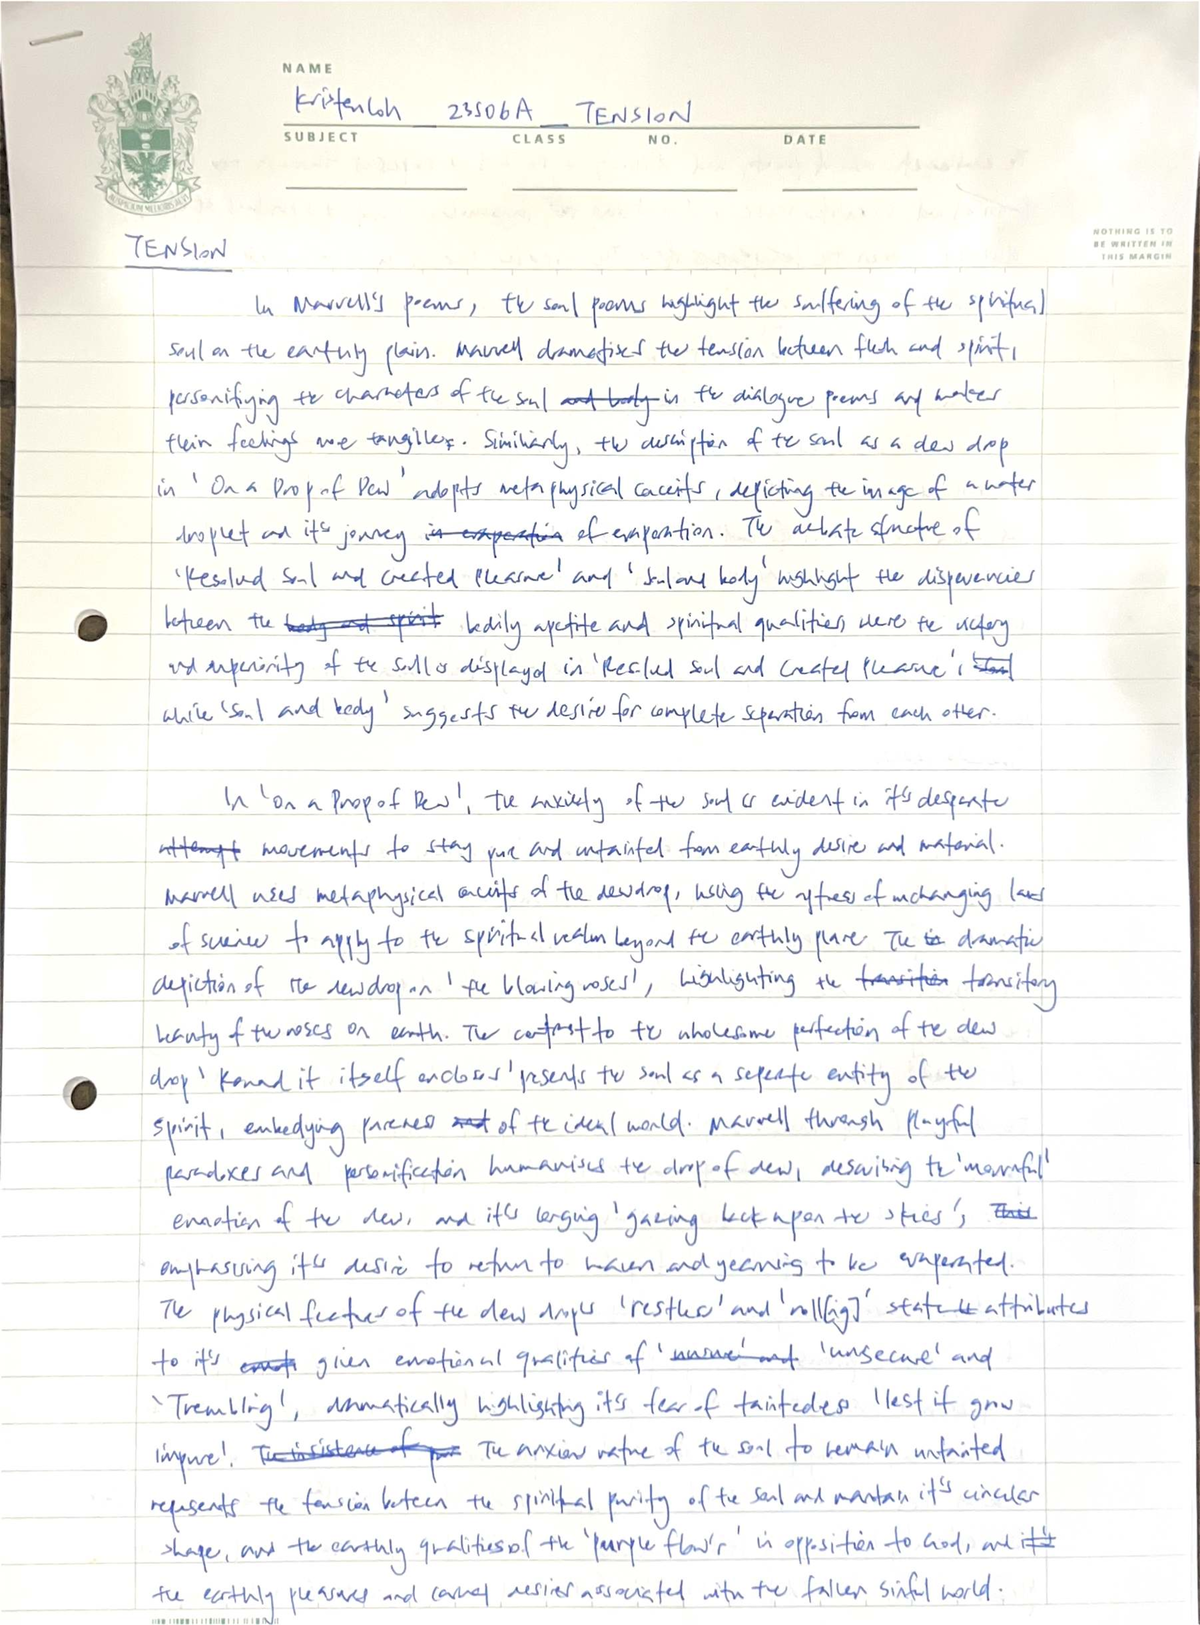 NAME
Kristen Loh 23S06A TENSION
SUBJECT CLASS NO. DATE
NOTHING IS TO
BE WRITTEN IN
THIS MARGIN
TENSION
In Marvell's poems, the soul poems highlight the suffering of the spiritual
soul on the earthly plain. Marvell dramatises the tension between flesh and spirit,
personifiying the characters of the soul and body in the dialogue poems and makes
their feelings more tangible. Similiarly, the description of the soul as a dew drop
in 'On a Drop of Dew' adopts metaphysical conceits, depicting the image of a water
droplet and it's journey in evaporation of evaporation. The debate structure of
'Resolved Soul and Created Pleasure' and 'Soul and body' highlight the disperencies
between the body and spirit bodily apetite and spiritual qualities, were the victory
and superiority of the soul is displayed in 'Resolved Soul and Created Pleasure',
while 'Soul and body' suggests the desire for complete separation from each other.
In 'On a Drop of Dew', the anxiety of the soul is evident in it's desperate
attempt movements to stay pure and untainted from earthly desire and material.
Marvell uses metaphysical conceits of the dewdrop, using the aptness of unchanging laws
of science to apply to the spiritual realm beyond the earthly plane. The is dramatic
depiction of the dewdrop on 'the blowing roses', highlighting the transition transitory
beauty of the roses on earth. The contrast to the wholesome perfection of the dew
drop 'Round it itself encloses' presents the soul as a seperate entity of the
spirit, embodying pureness and of the ideal world. Marvell through playful
paradoxes and personification humanises the drop of dew, describing the 'mournful'
emotion of the dew, and it's longing 'gazing back upon the skies', This
emphasising it's desire to return to heaven and yearning to be evaporated.
The physical features of the dew drops 'restless' and 'roll[ig]' state attributes
to it's given emotional qualities of 'unsecure' and
'Trembling', dramatically highlighting it's fear of taintedess 'lest it grow
impure'. The insistence of The anxious nature of the soul to remain untainted
represents the tension between the spiritual purity of the soul and mantain it's circular
shape, and the earthly qualities of the 'purple flow'r' in opposition to God, and it's
the earthly pleasures and carnal desires associated with the fallen sinful world.